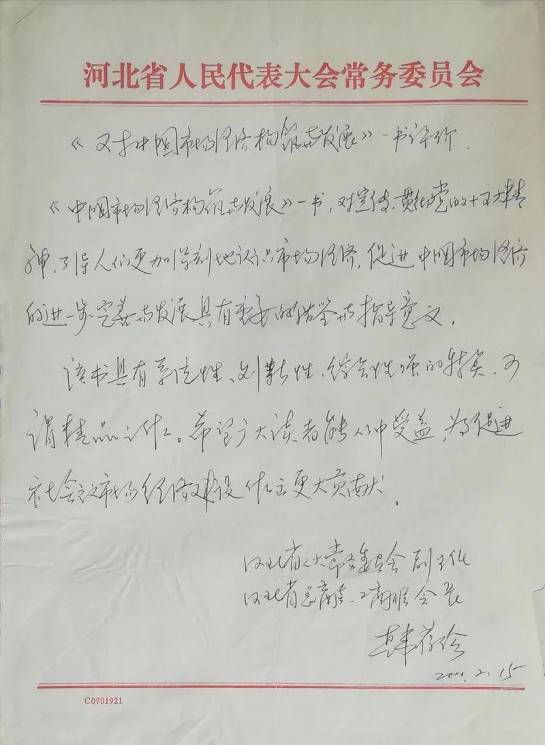 河北省人民代表大会常务委员会
《又才中国市场经济构筑与发展》一书评价.
《中国市场经济构筑与发展》一书,对宣传、贯彻党的十五大精
神,引导人们更加深刻地认识市场经济,促进中国市场经济
的进一步完善与发展具有重要的借鉴与指导意义。
该书具有系统性、创新性、综合性强的特点,可
谓精品之作。希望广大读者能从中受益,为促进
社会主义市场经济建设作出更大贡献。
河北省人大常委会副主任
河北省总商会、工商联会长
2.15
C0701921